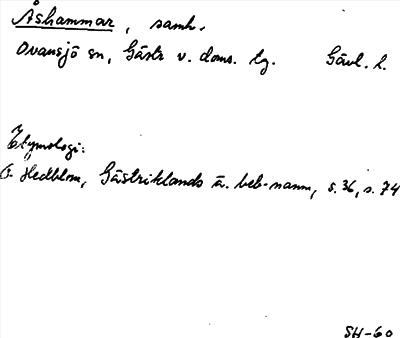 Åshammar, samh.
Ovansjö sn, Gästr v. doms. tg. Gävl. l.
Etymologi:
F. Hedblom, Gästriklands ä. beb-namn, s. 36, s. 74
SH-60